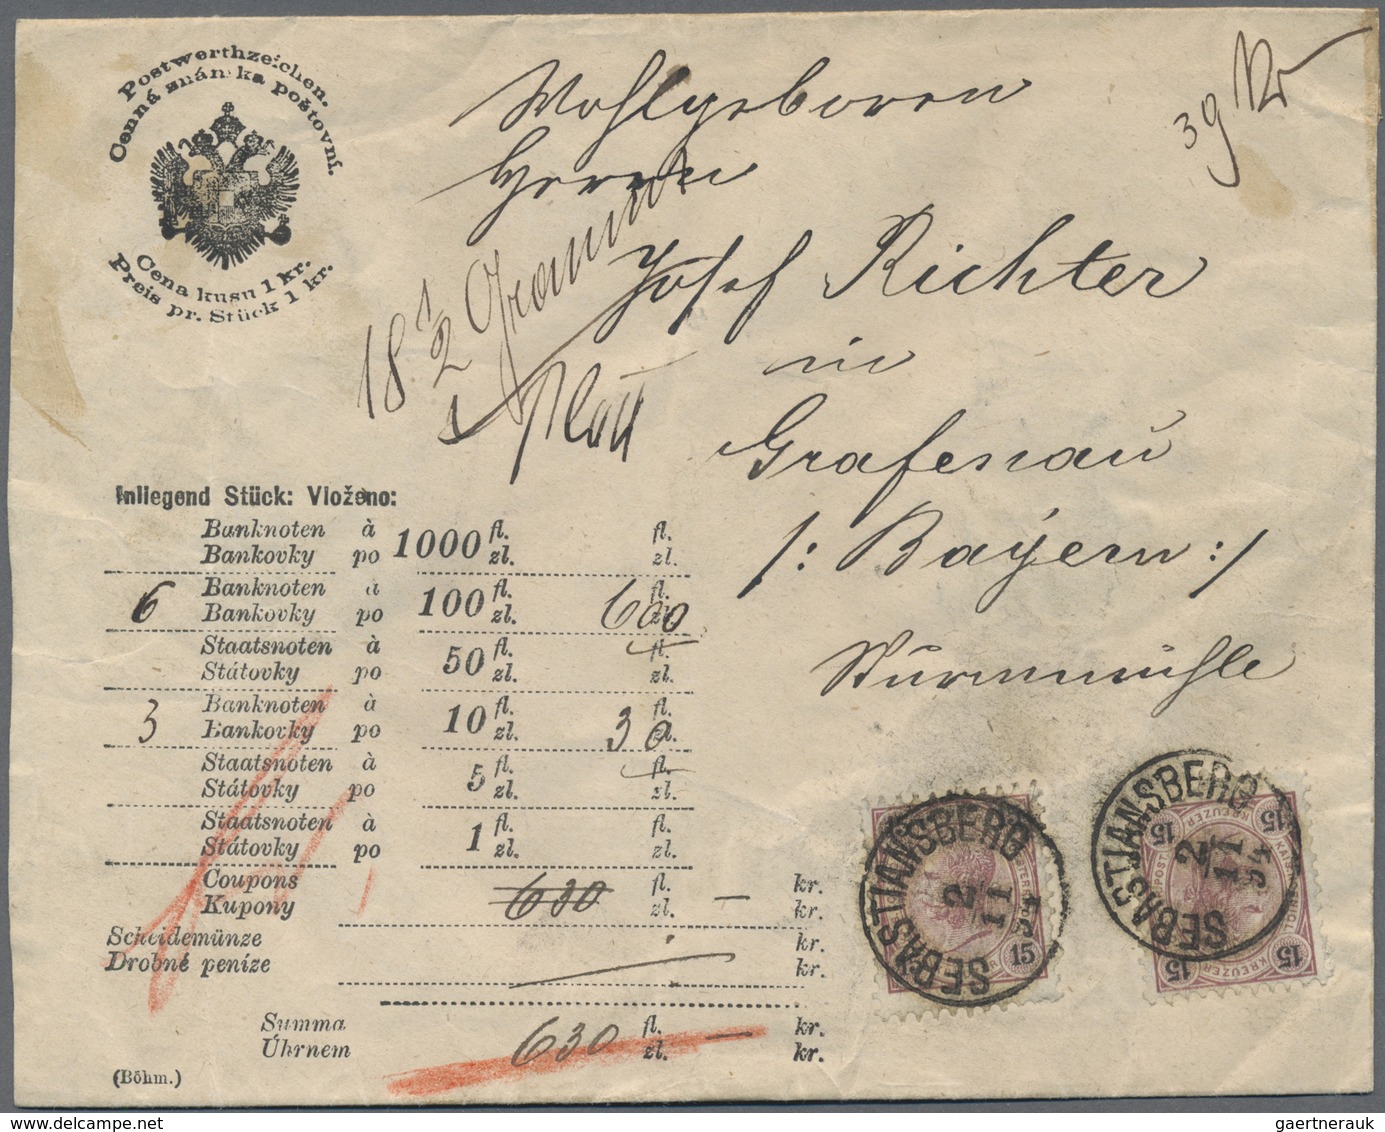 Postwerthzeichen.
Cenná známka poštovní.
Cena kusu 1 kr.
Preis pr. Stück 1 kr.
39 Kr
Wohlgeboren
Herrn
Josef Richter
in
Grafenau
/: Bayern :/
Sturmmühle
18 1/2 Gramm
Inliegend Stück: Vloženo:
Banknoten à 1000 fl. fl.
Bankovky po zl. zl.
6 Banknoten à 100 fl. 600 fl.
Bankovky po zl. zl.
Staatsnoten à 50 fl. fl.
Státovky po zl. zl.
3 Banknoten à 10 fl. 30 fl.
Bankovky po zl. zl.
Staatsnoten à 5 fl. fl.
Státovky po zl. zl.
Staatsnoten à 1 fl. fl.
Státovky po zl. zl.
Coupons 630 fl. — kr.
Kupony zl. kr.
Scheidemünze kr.
Drobné peníze kr.
Summa 630 fl. — kr.
Úhrnem zl. kr.
(Böhm.)
SEBASTJANSBERG
2
11
94
15
SEBASTJANSBERG
2
11
94
15 15
KREUZER
15 15
KREUZER
gaertnerauk